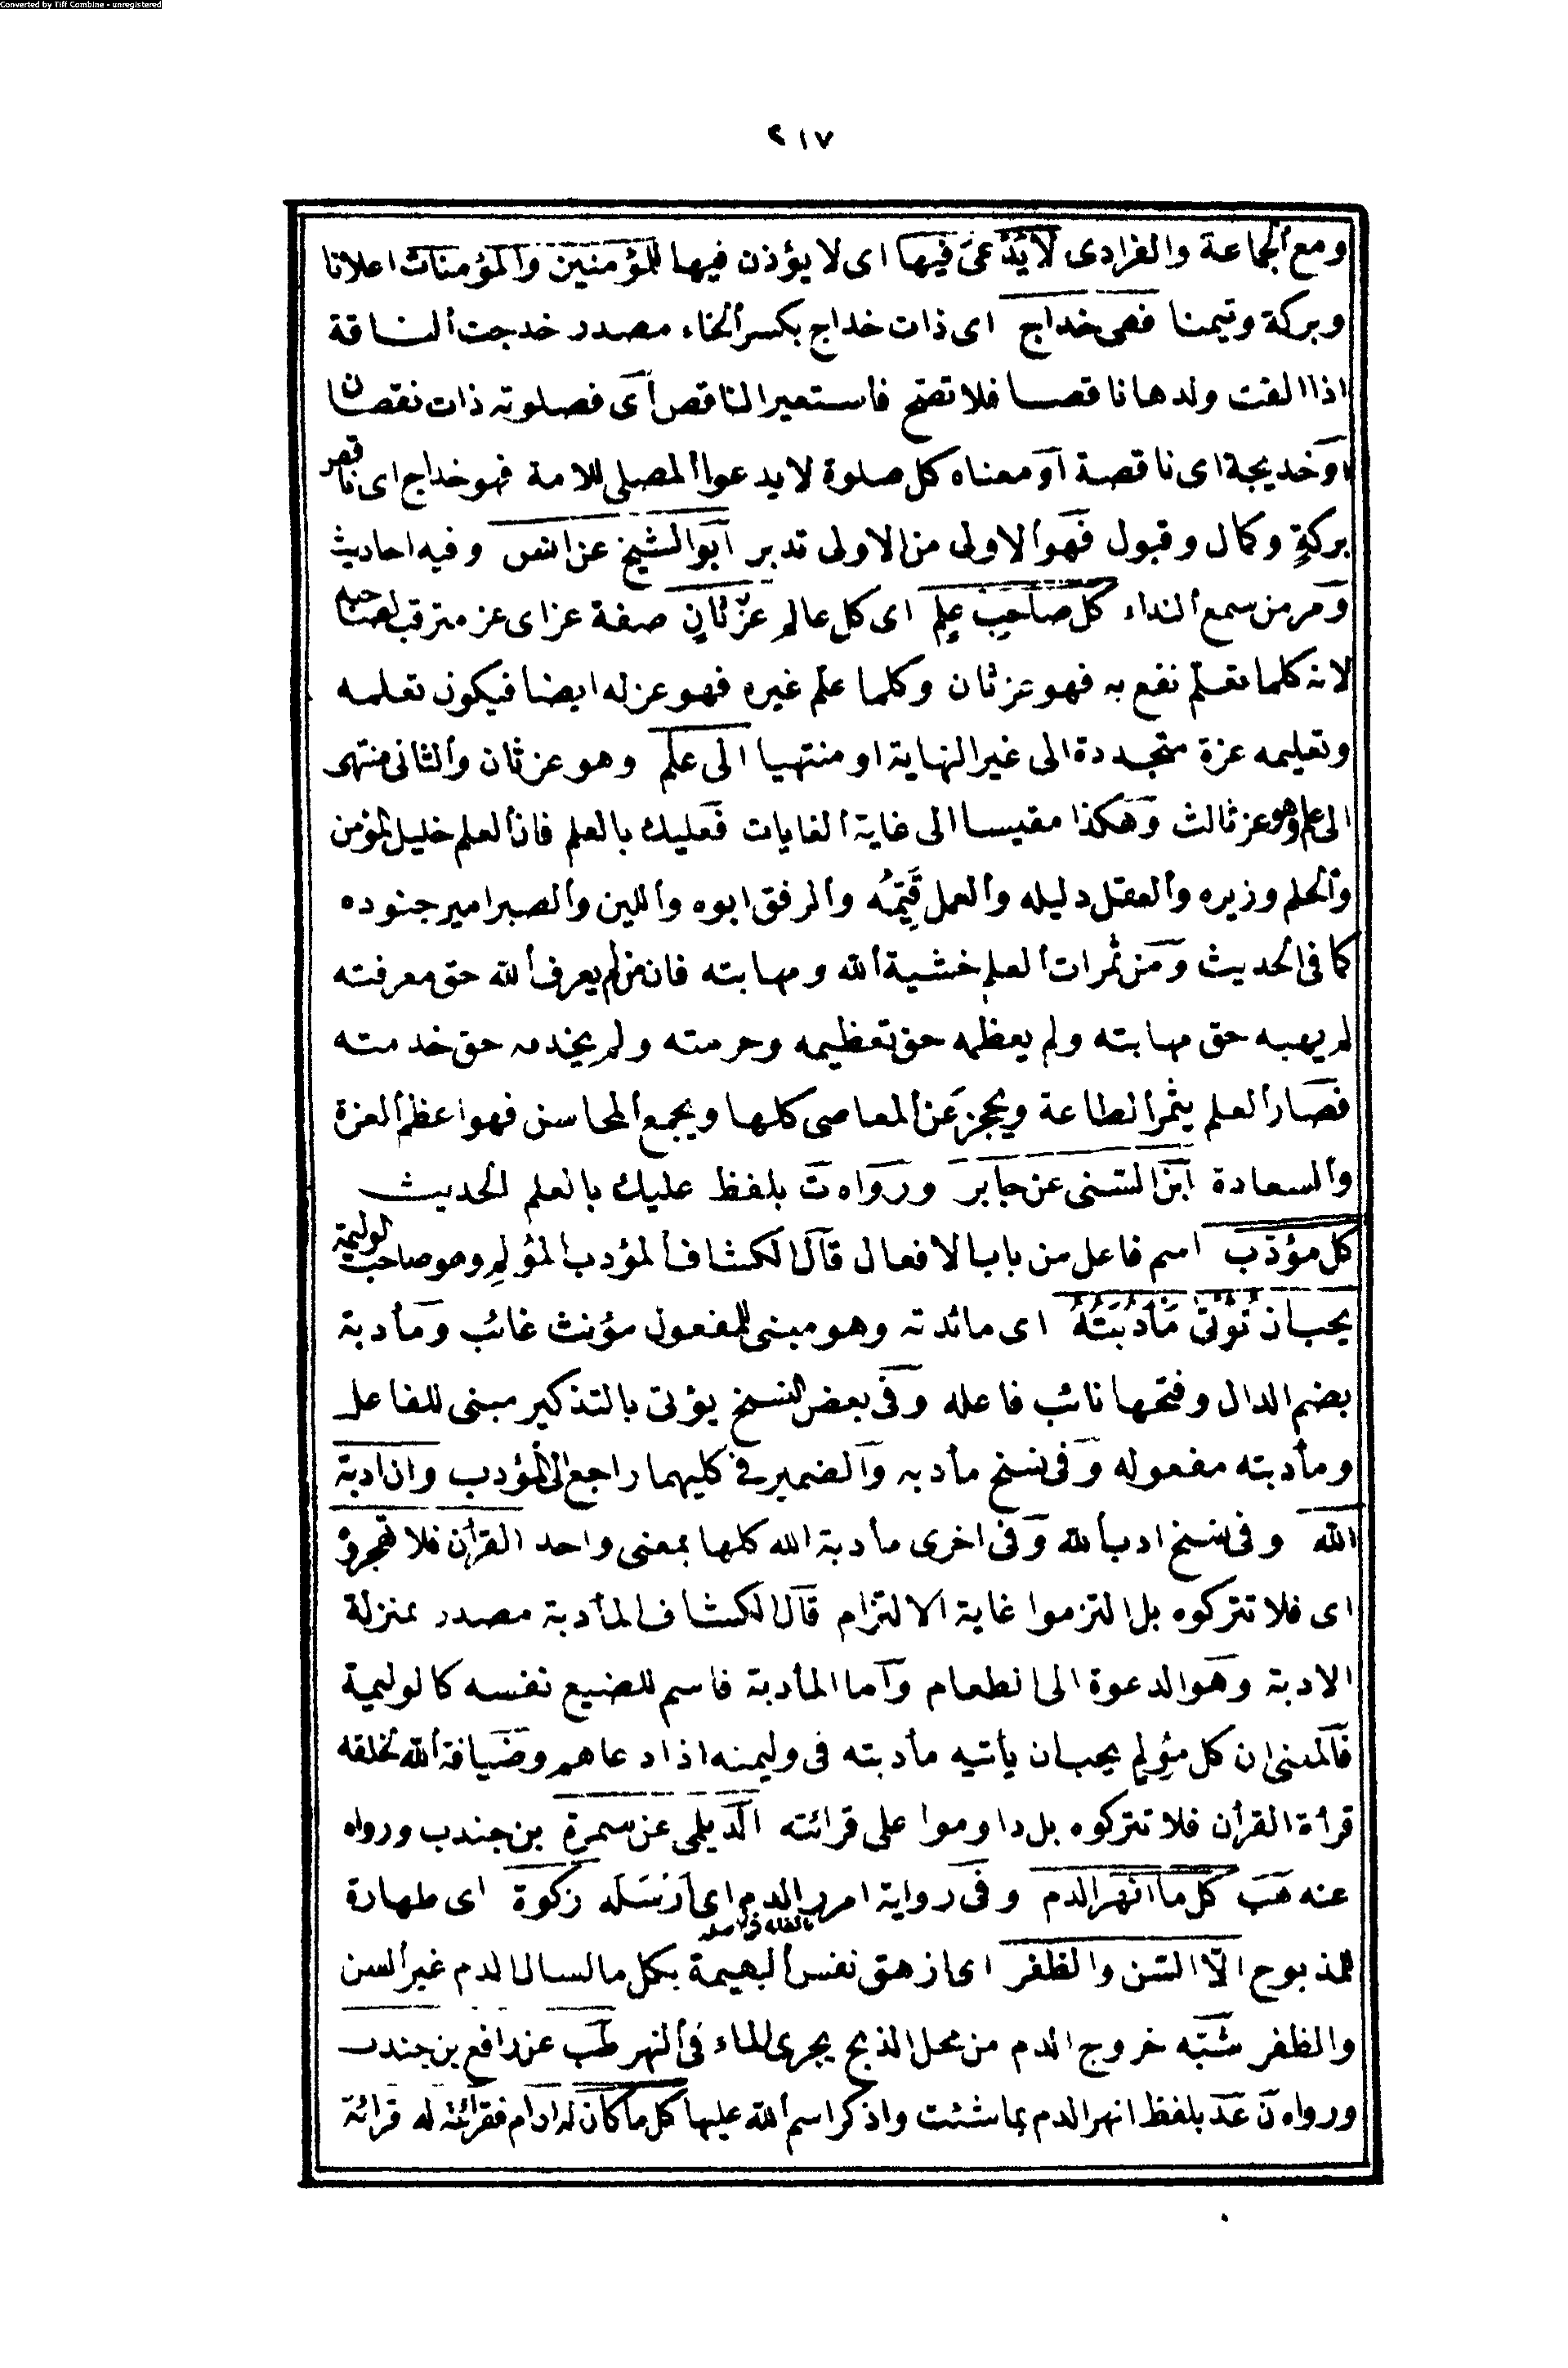 Converted by Tiff Combine - unregistered
٢١٧
ومع الجماعة والفرادى لا يُدْعى فيها اى لا يؤذن فيها للمؤمنين والمؤمنات اعلانا
وبركة وتيمنا فهى خداج اى ذات خداج بكسر الخاء مصدر خدجت الناقة
اذا القت ولدها ناقصا فلا تضح فاستعير الناقص اى فصلوته ذات نقصان
او خديجة اى ناقصة او معناه كل صلوة لا يدعوا المصلى للامة فهو خداج اى ناقص
بركةٍ وكمال وقبول فهو الاولى من الاولى تدبر ابو الشيخ عن انس وفيه احاديث
ومر من سمع النداء كل صاحب علم اى كل عالم عزّ ثانٍ صفة عز اى عز مترقب لصاحبه
لانه كلما تعلم نفع به فهو عز ثان وكلما علم غيره فهو عز له ايضا فيكون تعلمه
وتعليمه عزة متجددة الى غير النهاية او منتهيا الى علم وهو عز ثان والثانى منتهى
الى علم وهو عز ثالث وهكذا مقيسا الى غاية الغايات فعليك بالعلم فان العلم خليل المؤمن
والحلم وزيره والعقل دليله والعمل قَيِّمُه والرفق ابوه واللين والصبر امير جنوده
كما فى الحديث ومن ثمرات العلم خشية الله ومهابته فان من لم يعرف الله حق معرفته
لم يهبه حق مهابته ولم يعظمه حق تعظيمه وحرمته ولم يخدمه حق خدمته
فصار العلم يثمر الطاعة ويحجز عن المعاصى كلها ويجمع المحاسن فهو اعظم العزة
والسعادة ابن السنى عن جابر ورواه ت بلفظ عليك بالعلم الحديث
كل مؤدب اسم فاعل من باب الافعال قال الكشاف المؤدب المؤلم وهو صاحب الوليمة
يحب ان تُؤْتى مَأدُبَتُهُ اى مائدته وهو مبنى للمفعول مؤنث غائب ومأدبة
بضم الدال وفتحها نائب فاعله وفى بعض النسخ يؤتى بالتذكير مبنى للفاعل
ومأدبته مفعوله وفى نسخ مأدبه والضمير فى كليهما راجع الى المؤدب وان ادبة
الله وفى نسخ ادب الله وفى اخرى مأدبة الله كلها بمعنى واحد القرأن فلا تهجروه
اى فلا تتركوه بل التزموا غاية الالتزام قال الكشاف المأدبة مصدر بمنزلة
الادبة وهو الدعوة الى الطعام واما المأدبة فاسم للضيع نفسه كالوليمة
فالمعنى ان كل مؤلم يحب ان يأتيه مأدبته فى وليمته اذا دعاهم وضيافة الله لخلقه
قرأة القرأن فلا تتركوه بل داوموا على قرائته الديلمى عن سمرة بن جندب ورواه
عنه هب كل ما انهر الدم وفى رواية امرر الدم اى ارسله زكوة اى طهارة
للمذبوح الّا السّن والظفر اى ازهق نفس البهيمة بكل ما اسال الدم غير السن
والظفر شبّه خروج الدم من محل الذبح يجرى الماء فى النهر طب عن رافع بن جندب
ورواه ن عد بلفظ انهر الدم بما شئت واذكر اسم الله عليها كل ما كان له امام فقرائته له قرائة